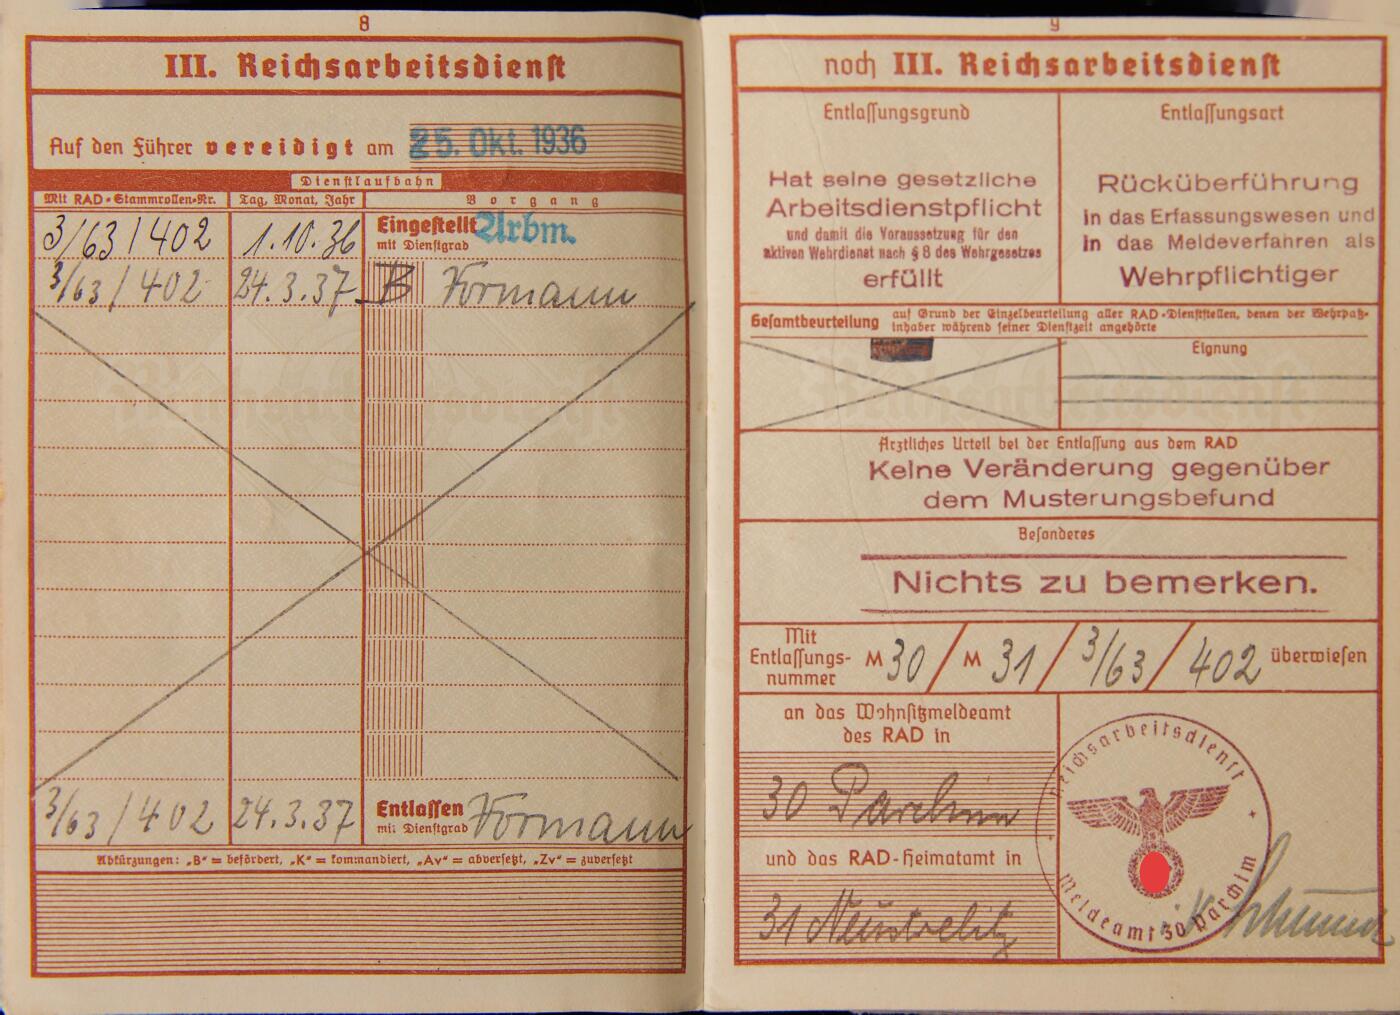 8
III. Reichsarbeitsdienst
Auf den Führer vereidigt am 25. Okt. 1936
Dienstlaufbahn
Mit RAD-Stammrollen-Nr. Tag, Monat, Jahr Vorgang
3/63/402 1.10.36 Eingestellt Arbm.
mit Dienstgrad
3/63/402 24.3.37 B Vormann
3/63/402 24.3.37 Entlassen Vormann
mit Dienstgrad
Abkürzungen: „B“ = befördert, „K“ = kommandiert, „Av“ = abversetzt, „Zv“ = zuversetzt
9
noch III. Reichsarbeitsdienst
Entlassungsgrund
Hat seine gesetzliche
Arbeitsdienstpflicht
und damit die Voraussetzung für den
aktiven Wehrdienst nach § 8 des Wehrgesetzes
erfüllt
Entlassungsart
Rücküberführung
in das Erfassungswesen und
in das Meldeverfahren als
Wehrpflichtiger
Gesamtbeurteilung auf Grund der Einzelbeurteilung aller RAD-Dienststellen, denen der Wehrpaß-
inhaber während seiner Dienstzeit angehörte
Eignung
Ärztliches Urteil bei der Entlassung aus dem RAD
Keine Veränderung gegenüber
dem Musterungsbefund
Besonderes
Nichts zu bemerken.
Mit
Entlassungs-
nummer
M 30 / M 31 / 3/63 / 402 überwiesen
an das Wohnsitzmeldeamt
des RAD in
30 Parchim
und das RAD-Heimatamt in
31 Neustrelitz
Reichsarbeitsdienst
Meldeamt 30 Parchim